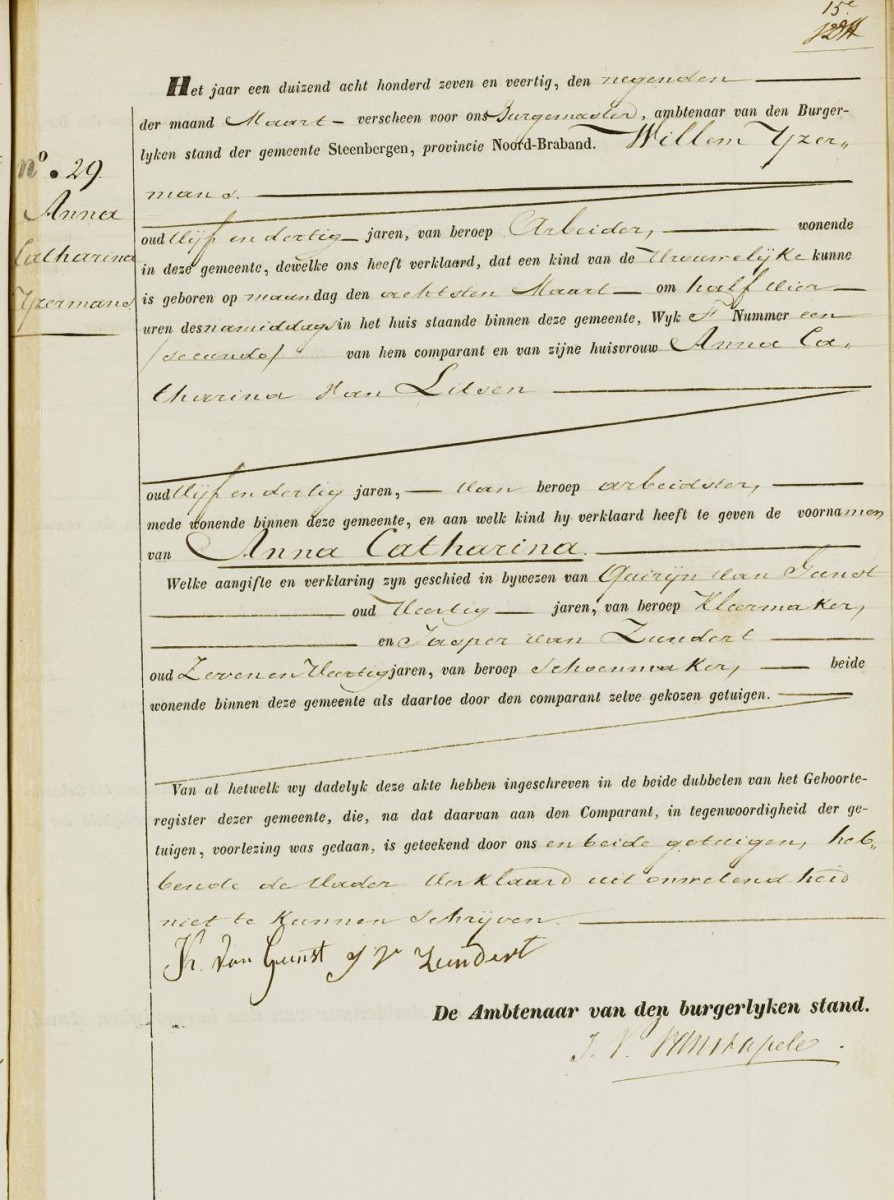 15e
Het jaar een duizend acht honderd zeven en veertig, den negenden
der maand Maart verscheen voor ons Burgemeester, ambtenaar van den Burger-
lyken stand der gemeente Steenbergen, provincie Noord-Braband. Willem Yzer„
mans.
no. 29
Anna
Catharina
Yzermans
oud Vijf en dertig jaren, van beroep Arbeider, wonende
in deze gemeente, dewelke ons heeft verklaard, dat een kind van de Vrouwelijke kunne
is geboren op maandag den achtsten Maart om half vier
uren des namiddags in het huis staande binnen deze gemeente, Wyk F Nummer een
/secundo/ van hem comparant en van zijne huisvrouw Anna Ca„
tharina Van Litsen
oud Vijf en dertig jaren, van beroep arbeidster,
mede wonende binnen deze gemeente, en aan welk kind hy verklaard heeft te geven de voornamen
van Anna Catharina.
Welke aangifte en verklaring zyn geschied in bywezen van Quirijn van Gunst
oud Veertig jaren, van beroep Kleermaker,
en Jasper van Zundert
oud Zeven en Veertig jaren, van beroep Schoenmaker, beide
wonende binnen deze gemeente als daartoe door den comparant zelve gekozen getuigen.
Van al hetwelk wy dadelyk deze akte hebben ingeschreven in de beide dubbelen van het Geboorte-
register dezer gemeente, die, na dat daarvan aan den Comparant, in tegenwoordigheid der ge-
tuigen, voorlezing was gedaan, is geteekend door ons en beide getuigen, heb„
bende de Vader Verklaard uit onwetendheid
niet te Kunnen Schrijven.
K. Van Gunst J V Zundert
De Ambtenaar van den burgerlyken stand.
J. V.